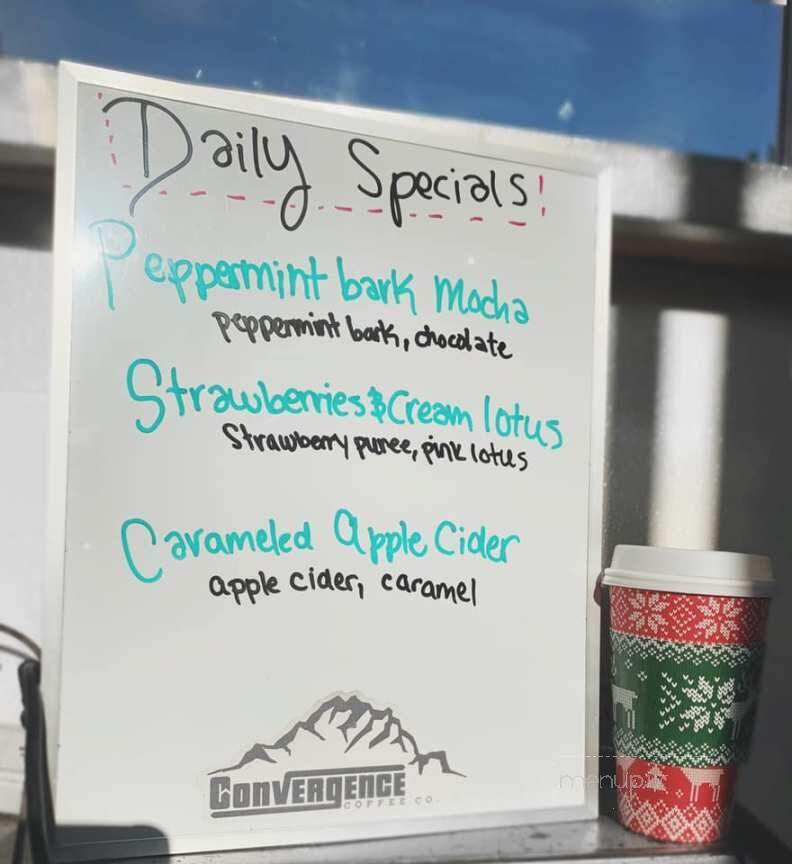 Daily Specials!
Peppermint bark Mocha
peppermint bark, chocolate
Strawberries & Cream lotus
Strawberry puree, pink lotus
Carameled Apple Cider
apple cider, caramel
CONVERGENCE
COFFEE CO.